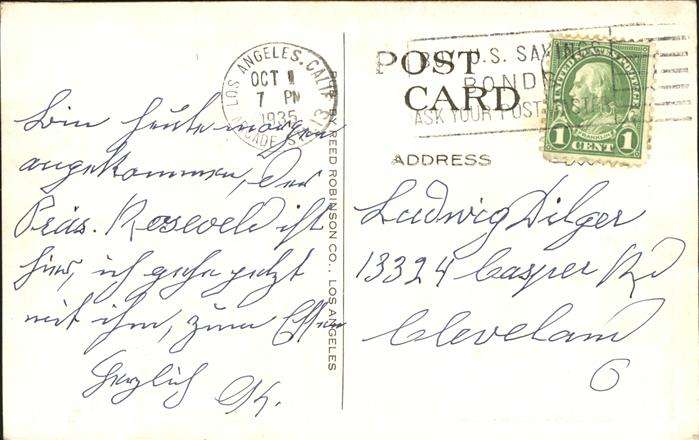 POST CARD
BUY U.S. SAVINGS
BONDS
ASK YOUR POSTMASTER
LOS ANGELES, CALIF.
ARCADE STA.
OCT 1
7 PM
1935
UNITED STATES POSTAGE
FRANKLIN
1 CENT 1
ADDRESS
Bin heute morgen
angekommen, Der
Präs. Roseveld ist
hier, ich gehe jetzt
mit ihm, zum Essen
Herzlich
PUB. BY REED ROBINSON CO., LOS ANGELES
Ludwig Dilger
13324 Casper Rd
Cleveland
O